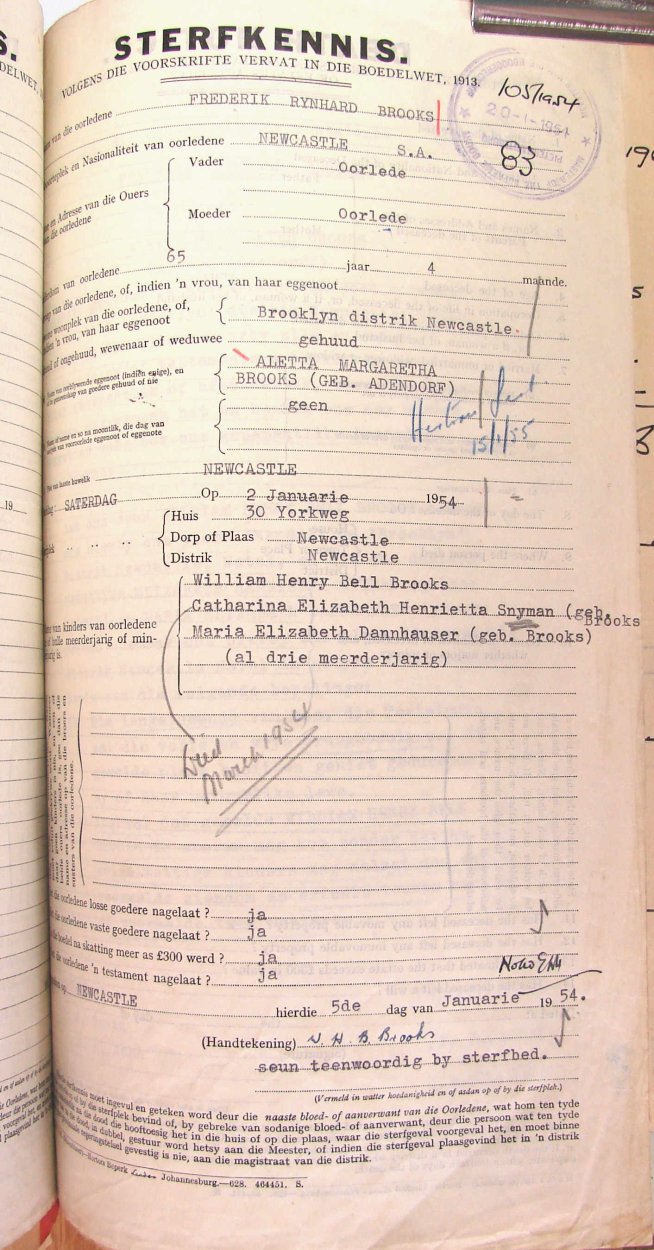 STERFKENNIS.
VOLGENS DIE VOORSKRIFTE VERVAT IN DIE BOEDELWET, 1913.
105/1954
20-1-1954
van die oorledene FREDERIK RYNHARD BROOKS
83
en Nasionaliteit van oorledene NEWCASTLE S.A.
en Adresse van die Ouers
die oorledene
Vader Oorlede
Moeder Oorlede
van oorledene 65 jaar 4 maande.
van die oorledene, of, indien 'n vrou, van haar eggenoot
woonplek van die oorledene, of,
vrou, van haar eggenoot
Brooklyn distrik Newcastle.
of ongehuud, wewenaar of weduwee gehuud
eggenoot (indien enige), en
van goedere gehuud of nie
ALETTA MARGARETHA
BROOKS (GEB. ADENDORF)
name en so na moontlik, die dag van
van vooroorlede eggenoot of eggenote
geen
15/1/55
van laaste huwelik NEWCASTLE
SATERDAG Op 2 Januarie 1954
Huis 30 Yorkweg
Dorp of Plaas Newcastle
Distrik Newcastle
van kinders van oorledene
of hulle meerderjarig of min-
is.
William Henry Bell Brooks
Catharina Elizabeth Henrietta Snyman (geb. Brooks
Maria Elizabeth Dannhauser (geb. Brooks)
(al drie meerderjarig)
Died
March 1954
name en adresse op van die broers en
susters van die oorledene.
die oorledene losse goedere nagelaat ? ja
die oorledene vaste goedere nagelaat ? ja
boedel na skatting meer as £300 werd ? ja
die oorledene 'n testament nagelaat ? ja
op NEWCASTLE hierdie 5de dag van Januarie 1954.
(Handtekening) W. H. B. Brooks
seun teenwoordig by sterfbed.
(Vermeld in watter hoedanigheid en of asdan op of by die sterfplek.)
moet ingevul en geteken word deur die naaste bloed- of aanverwant van die Oorledene, wat hom ten tyde
of by die sterfplek bevind of, by gebreke van sodanige bloed- of aanverwant, deur die persoon wat ten tyde
die dood die hooftoesig het in die huis of op die plaas, waar die sterfgeval voorgeval het, en moet binne
die dood, in dubbel, gestuur word hetsy aan die Meester, of indien die sterfgeval plaasgevind het in 'n distrik
gevestig is nie, aan die magistraat van die distrik.
Beperk Johannesburg.—628. 464451. S.